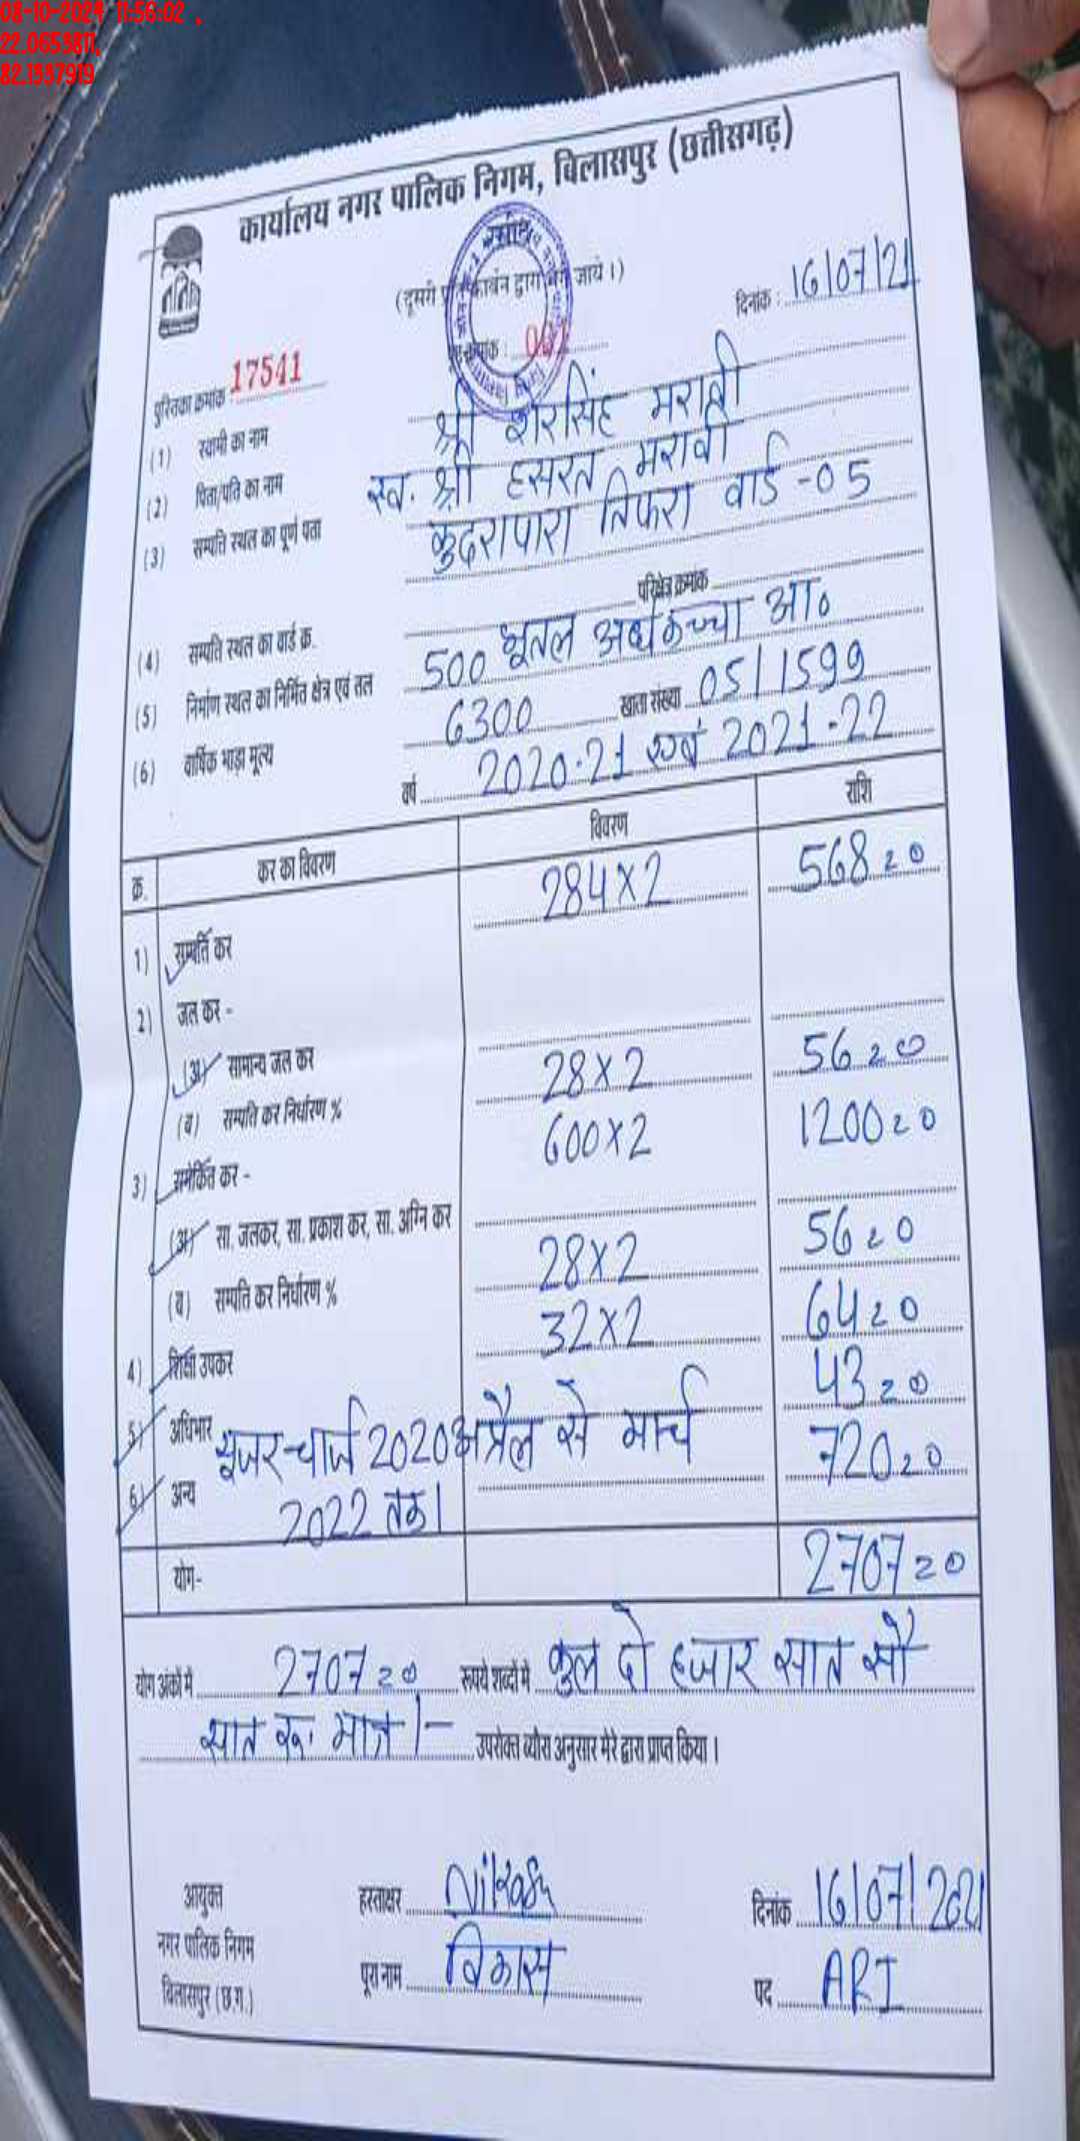 08-10-2024 11:56:02 ,
22.0653811,
82.1337919
कार्यालय नगर पालिक निगम, बिलासपुर (छत्तीसगढ़)
(दूसरी द्वारा जाये।)
दिनांक : 16/07/21
पुस्तिका क्रमांक 17541
(1) स्वामी का नाम श्री शेरसिंह मरावी
(2) पिता/पति का नाम स्व. श्री हसरत मरावी
(3) सम्पत्ति स्थल का पूर्ण पता कुदरापारा तिफरा वार्ड -05
(4) सम्पत्ति स्थल का वार्ड क्र. परिक्षेत्र क्रमांक
(5) निर्माण स्थल का निर्मित क्षेत्र एवं तल 500 भूतल अर्धकच्चा आ०
(6) वार्षिक भाड़ा मूल्य 6300 खाता संख्या 05/1599
वर्ष 2020-21 एवं 2021-22
क्र. कर का विवरण विवरण राशि
1) सम्पत्ति कर 284×2 568=0
2) जल कर -
(अ) सामान्य जल कर 28×2 56=0
(ब) सम्पत्ति कर निर्धारण % 600×2 1200=0
3) समेकित कर -
(अ) सा. जलकर, सा. प्रकाश कर, सा. अग्नि कर 28×2 56=0
(ब) सम्पत्ति कर निर्धारण % 32×2 64=0
4) शिक्षा उपकर 43=0
5) अधिभार यूजर चार्ज 2020 अप्रैल से मार्च 720=0
6) अन्य 2022 तक।
योग- 2707=0
योग अंकों में 2707=0 रूपये शब्दों में कुल दो हजार सात सौ
सात रू. मात्र।- उपरोक्त ब्यौरा अनुसार मेरे द्वारा प्राप्त किया।
आयुक्त हस्ताक्षर दिनांक 16/07/2021
नगर पालिक निगम पूरा नाम विकास पद ARI
बिलासपुर (छ.ग.)